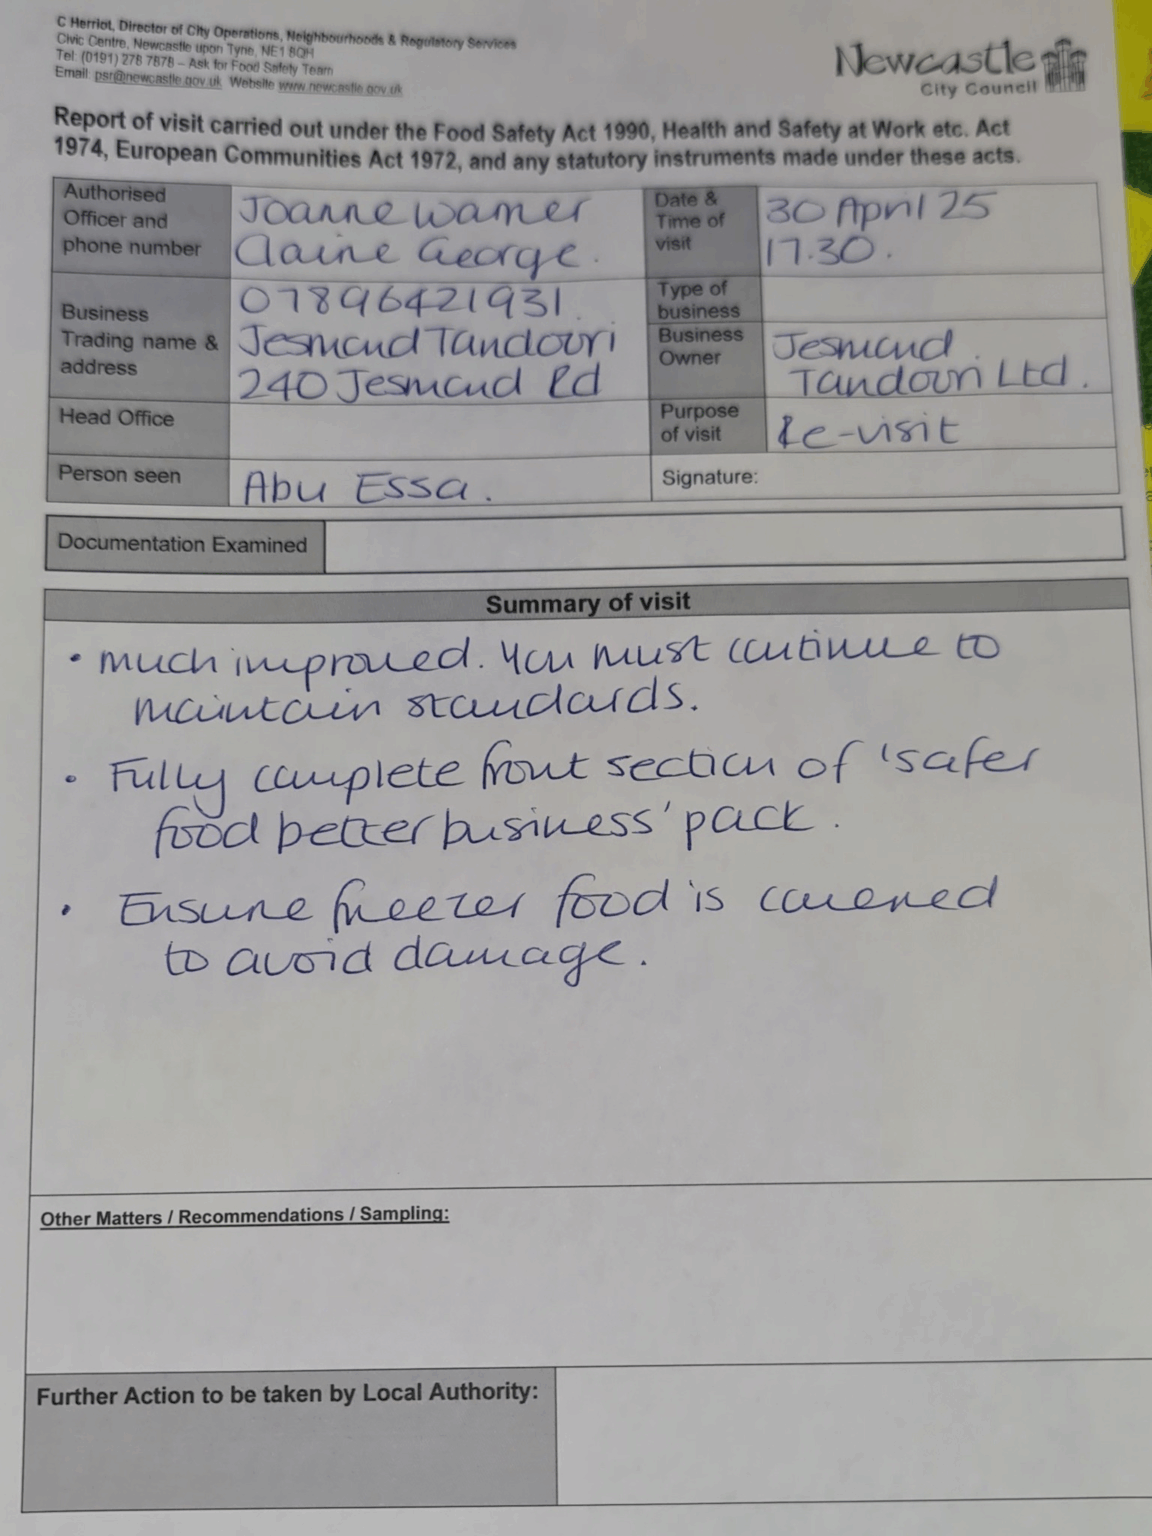 C Herriot, Director of City Operations, Neighbourhoods & Regulatory Services
Civic Centre, Newcastle upon Tyne, NE1 8QH
Tel: (0191) 278 7878 – Ask for Food Safety Team
Email: psr@newcastle.gov.uk Website www.newcastle.gov.uk
Newcastle
City Council
Report of visit carried out under the Food Safety Act 1990, Health and Safety at Work etc. Act
1974, European Communities Act 1972, and any statutory instruments made under these acts.
Authorised
Officer and
phone number
Joanne Warner
Claire George.
07896421931
Date &
Time of
visit
30 April 25
17.30.
Business
Trading name &
address
Jesmond Tandoori
240 Jesmond Rd
Type of
business
Business
Owner
Jesmond
Tandoori Ltd.
Head Office
Purpose
of visit
Re-visit
Person seen
Abu Essa.
Signature:
Documentation Examined
Summary of visit
• much improved. You must continue to
maintain standards.
• Fully complete front section of 'safer
food better business' pack.
• Ensure freezer food is covered
to avoid damage.
Other Matters / Recommendations / Sampling:
Further Action to be taken by Local Authority: